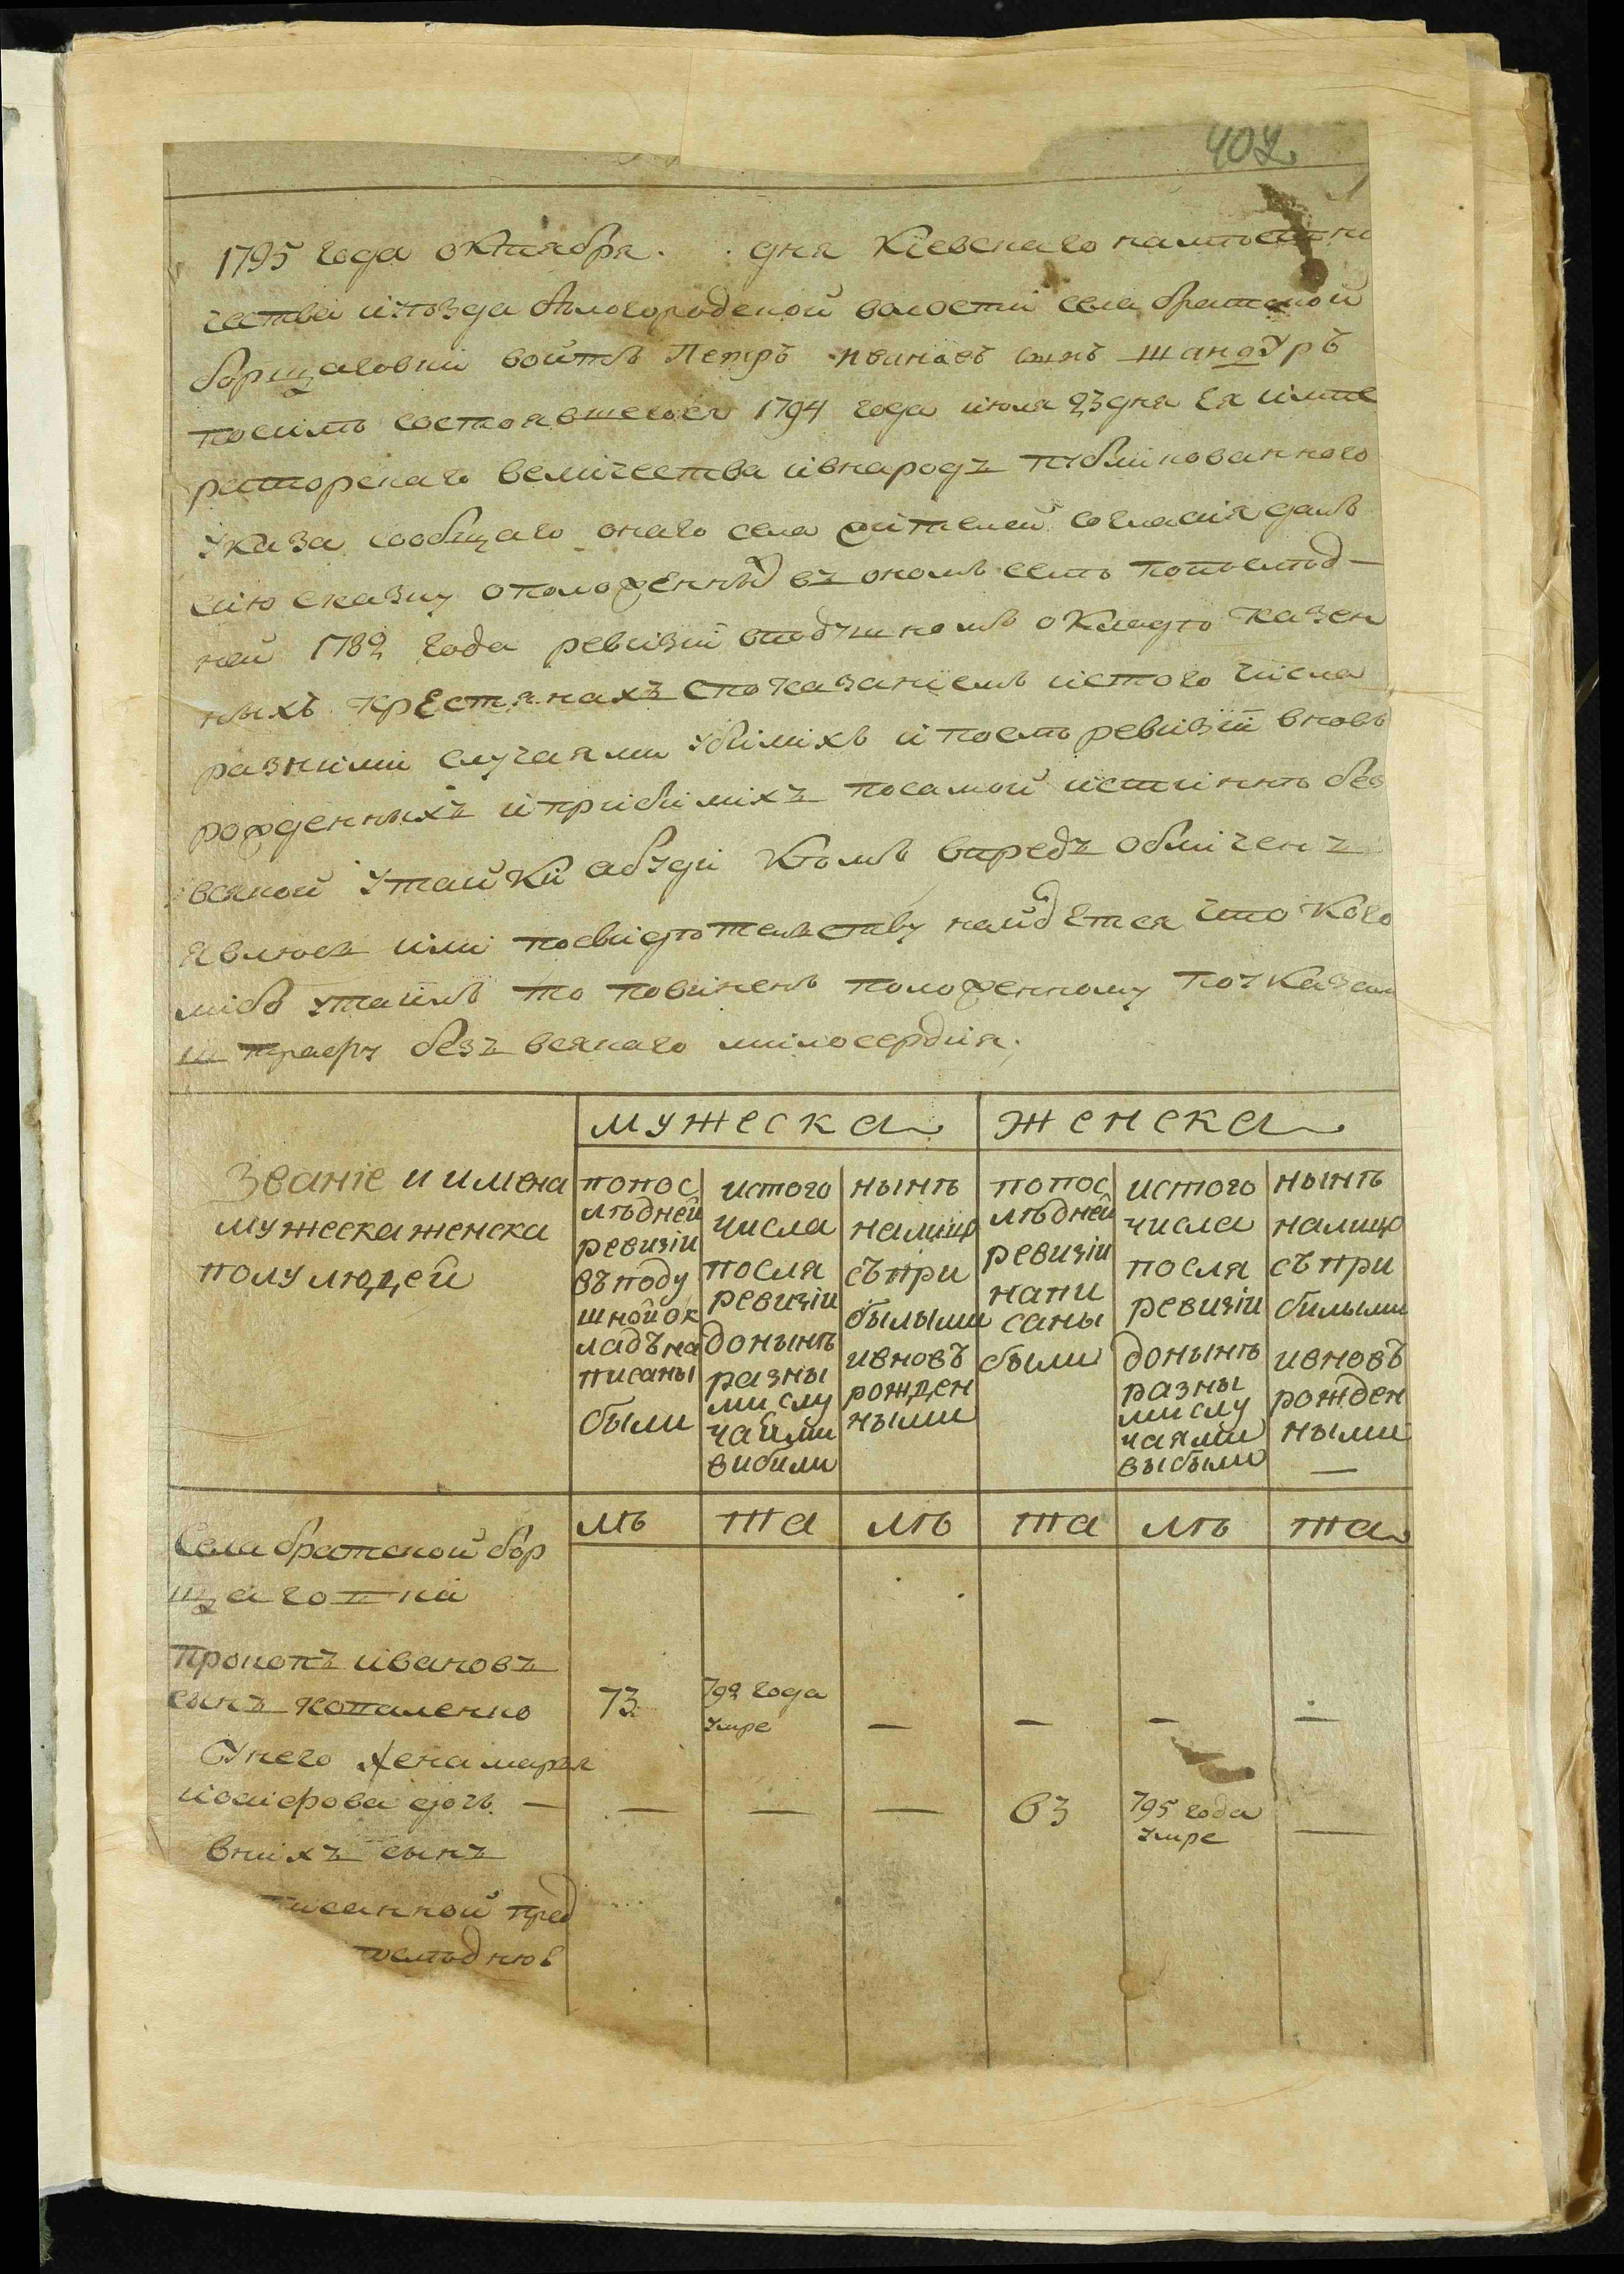 402
1795 года октября . . дня Кіевскаго намѣстни
чества иуѣзда бѣлогородской волости села братской
борщаговки войтъ Петръ сынъ шандуръ
посилѣ состоявшегося 1794 года июля 23 дня Ея импе
раторскаго величества ивнародъ публикованного
указа сообщаго онаго села жителей согласія далъ
сию сказку оположенныхъ въ ономъ селѣ попослѣд—
ней 1782 года ревизіи вподушномъ окладѣ казен
ныхъ крестянахъ споказаніемъ истого числа
разними случаями убилихъ и послѣ ревизіи вновь
рожденныхъ и прибилихъ посамой истиннѣ без
всякой утайки абуди Ктомъ впредъ обличенъ
явлюсъ или посвидѣтельству найдется что Кого
либо утаилъ то повиненъ положенному поуказам
штрафу безъ всякаго милосердия.
мужеска женска
Званіе и имена
мужеска женска
полу людей
попос
лѣдней
ревизіи
въ поду
шной ок
ладъ на
писаны
были
истого
числа
посля
ревизіи
донынѣ
разны
ми слу
чаями
вибили
нынѣ
налицо
съ при
былыми
ивновъ
рожден
ными
попос
лѣдней
ревизіи
напи
саны
были
истого
числа
посля
ревизіи
донынѣ
разны
ми слу
чаями
выбыли
нынѣ
налицо
съ при
билыми
ивновъ
рожден
ными
—
лѣ та лѣ та лѣ та
Села братской бор
щаговки
Прокопъ ивановъ
сынъ копаленко 73 792 года умре — — — —
Унего жена марья
иосифова дочь — — — — 63 795 года умре —
внихъ сынъ
писанной пред
послѣднюю